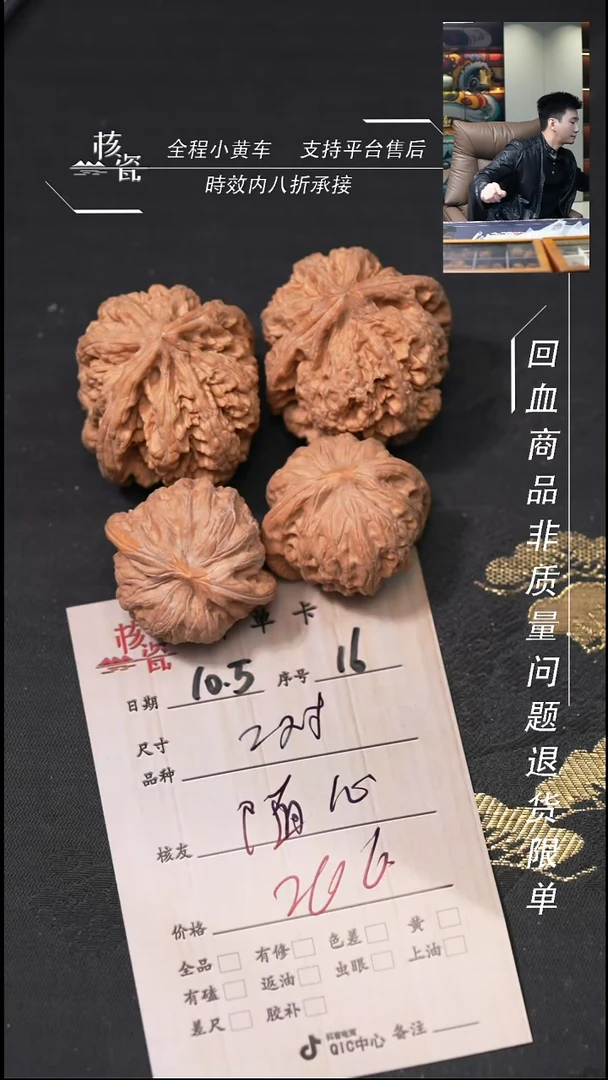 核瓷
全程小黄车 支持平台售后
時效内八折承接
回血商品非质量问题退货限单
核瓷 单卡
日期 10.5 序号 16
尺寸 2对
品种
核友 随心
价格
全品 有修 色差 黄
有磕 返油 虫眼 上油
差尺 胶补
抖音电商
QIC中心 备注